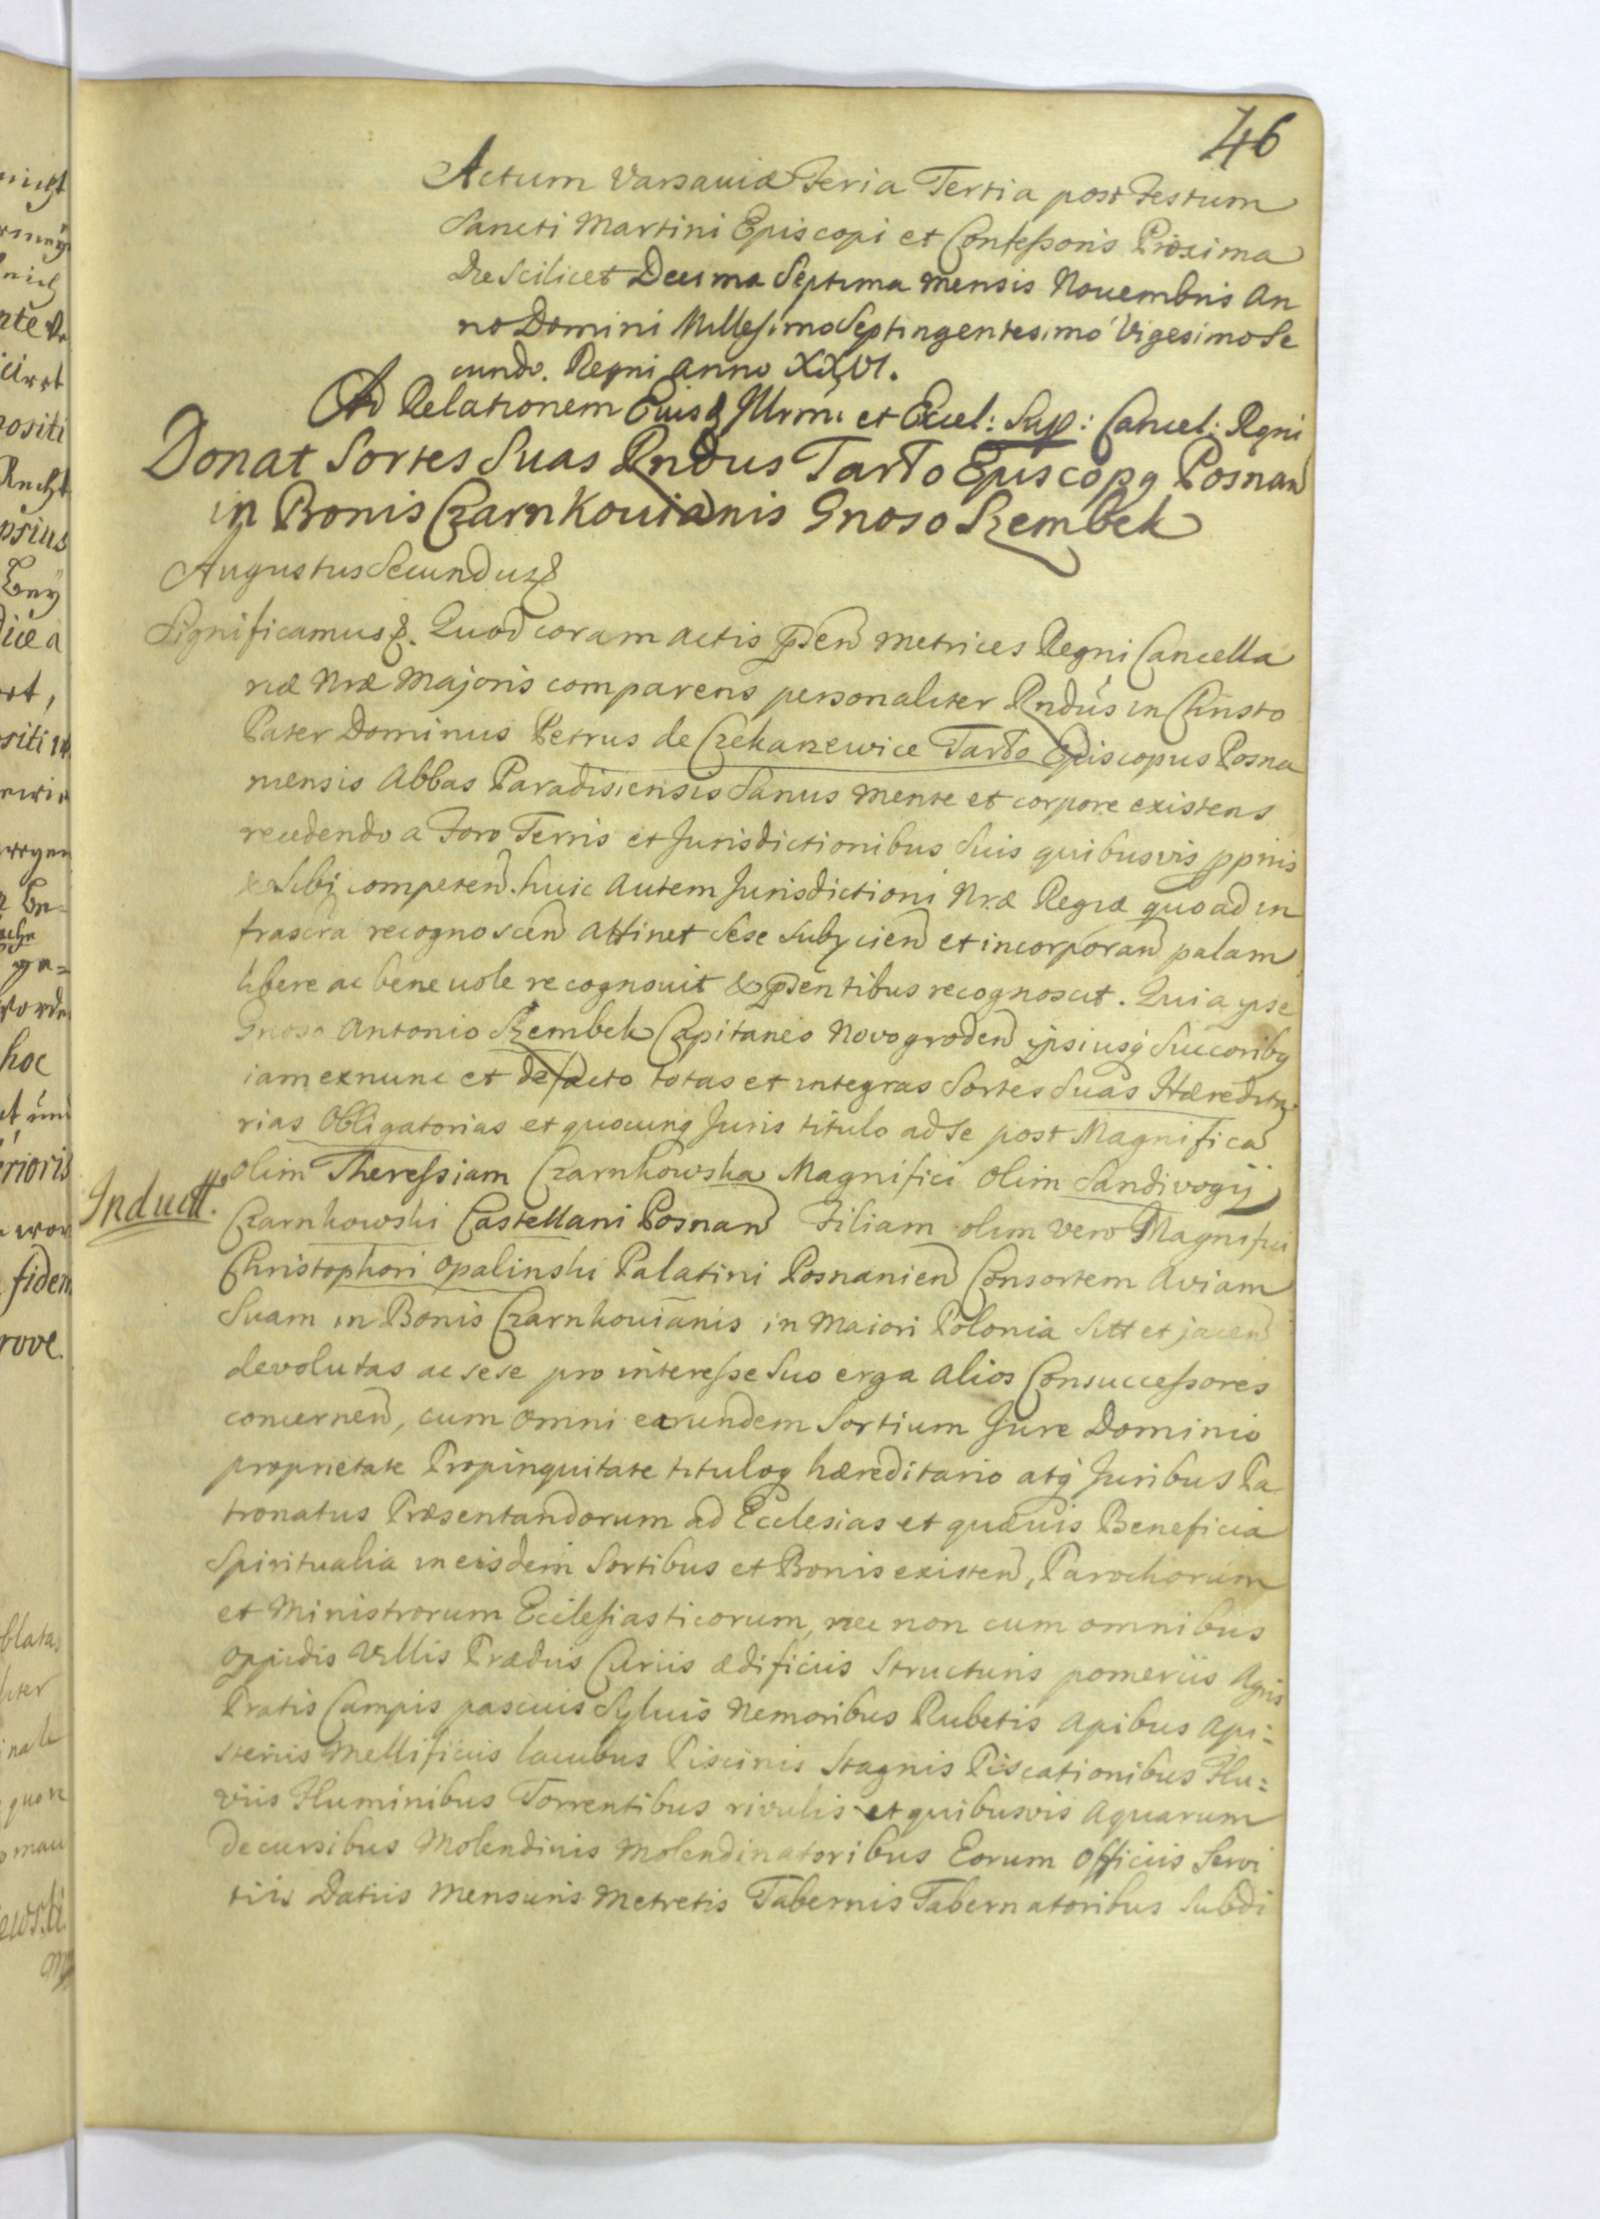 46
Actum Varsaviæ Feria Tertia post Festum
Sancti Martini Episcopi et Confessoris Proxima
die Scilicet Decima Septima mensis Novembris An
no Domini Millesimo Septingentesimo Vigesimo Se
cundo. Regni Anno XXVI.
Ad Relationem Eiusd Illrmi et Excel: Sup: Cancel: Rgni
Donat Sortes Suas Rndus Tarło Episcopq Posnan
in Bonis Czarnkovianis Gnoso Szembek
Augustus Secundus &
Significamus &. Quod coram actis pden Metrices Regni Cancella
riæ Nræ Majoris comparens personaliter Rndus in Christo
Pater Dominus Petrus de Czekarzewice Tarło Episcopus Posna
niensis Abbas Paradisiensis Sanus mente et corpore existens
recedendo a Foro Terris et Jurisdictionibus Suis quibusvis pprijs
& Sibi competen. huic autem Jurisdictioni Nræ Regiæ quo ad in
frascra recognoscen attinet Sese Subijcien et incorporan palam
libere ac benevole recognovit & pdentibus recognoscit. Quia ipse
Gnoso Antonio Szembek Capitaneo Novogroden ipsiusq Succoribq
iam exnunc et de facto totas et integras Sortes Suas Hæredita
rias Obligatorias et quocunq Juris titulo ad Se post Magnifica
olim Theressiam Czarnkowska Magnifici olim Sandivogij
Induct.
Czarnkowski Castellani Posnan Filiam olim vero Magnifici
Christophori Opalinski Palatini Posnanien Consortem Aviam
Suam in Bonis Czarnkovianis in Maiori Polonia Sitt et jacen
devolutas ac sese pro interesse Suo erga alios Consuccessores
concernen, cum omni earundem Sortium Jure Dominio
proprietate Propinquitate tituloq hæreditario atq Juribus Pa
tronatus Præsentandorum ad Ecclesias et quævis Beneficia
Spiritualia in eisdem Sortibus et Bonis existen, Parochorum
et Ministrorum Ecclesiasticorum, nec non cum omnibus
Oppidis Villis Prædiis Curiis ædificiis Structuris pomeriis Agris
Pratis Campis pascuis Sylvis Nemoribus Rubetis Apibus Api=
steriis Mellificiis lacubus Piscinis Stagnis Piscationibus Flu=
viis Fluminibus Torrentibus rivulis et quibusvis Aquarum
decursibus Molendinis Molendinatoribus Eorum Officiis Servi
tiis Datiis Mensuris Metretis Tabernis Tabernatoribus Subdi